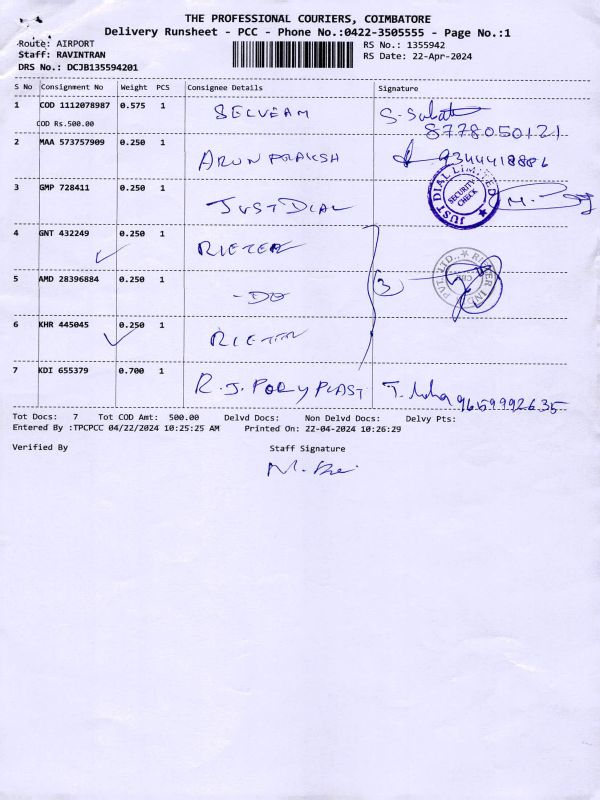 THE PROFESSIONAL COURIERS, COIMBATORE
Delivery Runsheet - PCC - Phone No.:0422-3505555 - Page No.:1
Route: AIRPORT
Staff: RAVINTRAN
DRS No.: DCJB135594201
RS No.: 1355942
RS Date: 22-Apr-2024
S No Consignment No Weight PCS Consignee Details Signature
1 COD 1112078987 0.575 1 SELVEAM
COD Rs.500.00
8778050121
2 MAA 573757909 0.250 1 ARUN PRAKSH 9344418886
3 GMP 728411 0.250 1 JUST DIAL
JUST DIAL LIMITED
SECURITY CHECK
4 GNT 432249 0.250 1 RIETER
5 AMD 28396884 0.250 1 -DO 3
6 KHR 445045 0.250 1 RIETER
7 KDI 655379 0.700 1 R.J. POLY PLAST 9659992635
Tot Docs: 7 Tot COD Amt: 500.00 Delvd Docs: Non Delvd Docs: Delvy Pts:
Entered By :TPCPCC 04/22/2024 10:25:25 AM Printed On: 22-04-2024 10:26:29
Verified By Staff Signature